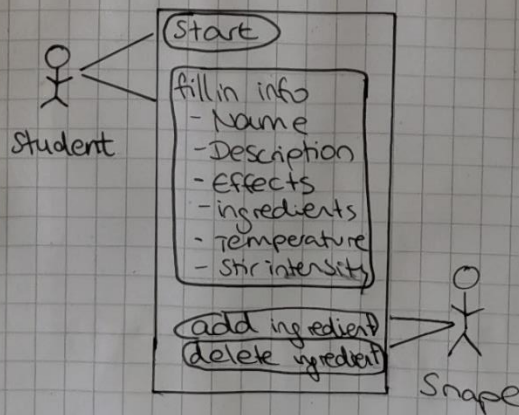 Start
Student
fill in info
- Name
- Description
- Effects
- ingredients
- Temperature
- Stir intensity
add ingredient
delete ingredient
Snape